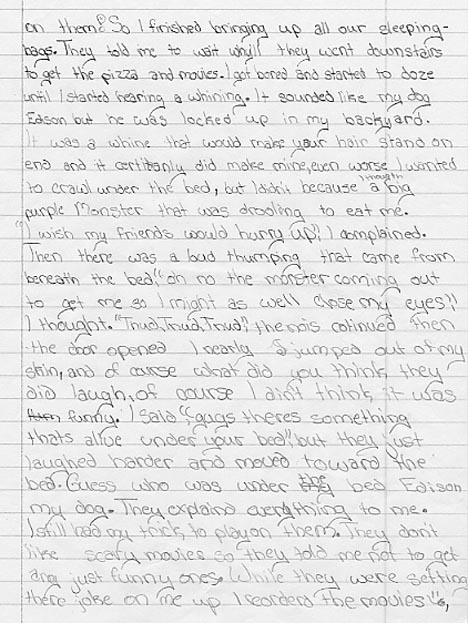 on them? So I finished bringing up all our sleeping-
bags. They told me to wait whyll they went downstairs
to get the pizza and movies. I got bored and started to doze
until I started hearing a whining. It sounded like my dog
Edison but he was locked up in my backyard.
It was a whine that would make your hair stand on
end and it certibanly did make mine, even worse I wanted
to crawl under the bed, but I didn't because I thought a big
purple Monster that was drooling to eat me.
"I wish my friends would hurry up", I complained.
Then there was a loud thumping that came from
beneath the bed, "oh no the monster coming out
to get me so I might as well close my eyes",
I thought. "Trud, Trud, Trud", the nois cotinued then
the door opened I nearly jumped out of my
skin, and of course what did you think they
did laugh, of course I ain't think it was
funny. I said "gugs theres something
thats alive under your bed", but they just
laughed harder and moved toward the
bed. Guess who was under bed Edison
my dog. They explaind everything to me.
I still had my trick, to play on them. They don't
like scary movies so they told me not to get
any just funny ones. While they were setting
there joke on me up I reorders the movies